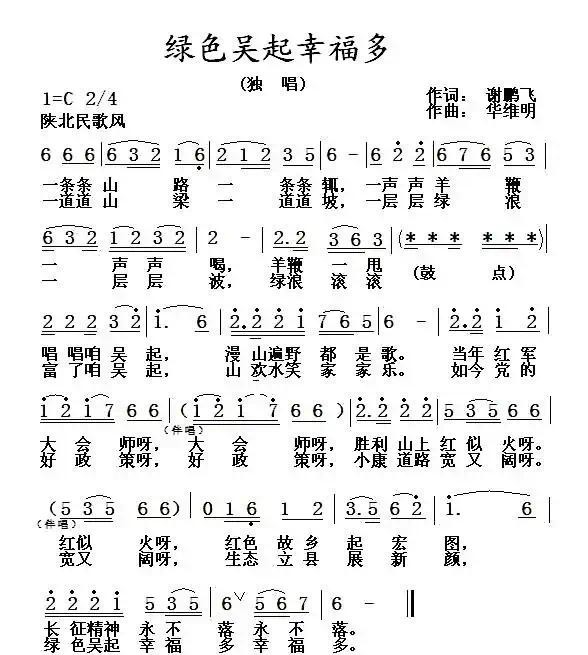 绿色吴起幸福多
(独 唱)
1=C 2/4
作词： 谢鹏飞
陕北民歌风
作曲： 华维明
6 6 6 | 6 3 2 1 6 | 2 1 2 3 5 | 6 - | 6 2 2 | 6 7 6 5 3 |
一条条 山 路 一 条条 辄，一声 声 羊 鞭
一道道 山 梁 一 道道 坡，一层 层 绿 浪
6 3 2 | 1 2 3 2 | 2 - | 2.2 3 6 3 | (* * * * * *) |
一 声 声 喝，羊鞭 一 甩 (鼓 点)
一 层 层 波，绿浪 滚 滚
2 2 2 3 2 | 1. 6 | 2.2 2 1 7 6 5 | 6 - | 2.2 1 2 |
唱 唱咱 吴 起， 漫 山遍野 都 是 歌。 当年 红 军
富 了咱 吴 起， 山 欢水笑 家 家 乐。 如今 党 的
1 2 1 7 6 6 | (1 2 1 7 6 6) | 2.2 2 2 | 5 3 5 6 6 |
(伴唱)
大 会 师呀， 大 会 师呀， 胜利 山上 红 似 火呀。
好 政 策呀， 好 政 策呀， 小康 道路 宽 又 阔呀。
(5 3 5 6 6) | 0 1 6 1 2 | 3.5 6 2 | 1. 6 |
(伴唱)
红似 火呀， 红色 故 乡 起 宏 图，
宽又 阔呀， 生态 立 县 展 新 颜，
2 2 2 1 | 5 3 5 | 6 ∨ 5 6 7 | 6 - ‖
长 征精神 永 不 落 永 不 落。
绿 色吴起 幸 福 多 幸 福 多。